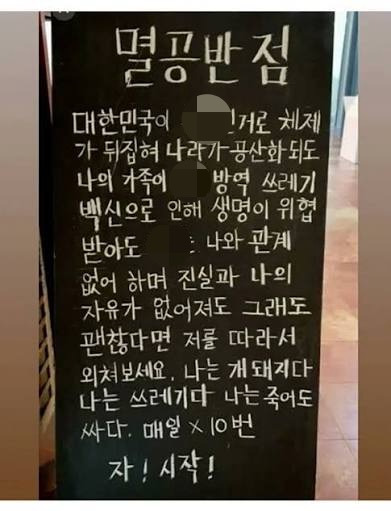 멸공반점
대한민국이 거로 체제
가 뒤집혀 나라가 공산화 되도
나의 가족이 방역 쓰레기
백신으로 인해 생명이 위협
받아도 나와 관계
없어 하며 진실과 나의
자유가 없어져도 그래도
괜찮다면 저를 따라서
외쳐보세요. 나는 개돼지다
나는 쓰레기다 나는 죽어도
싸다. 매일 × 10번
자! 시작!